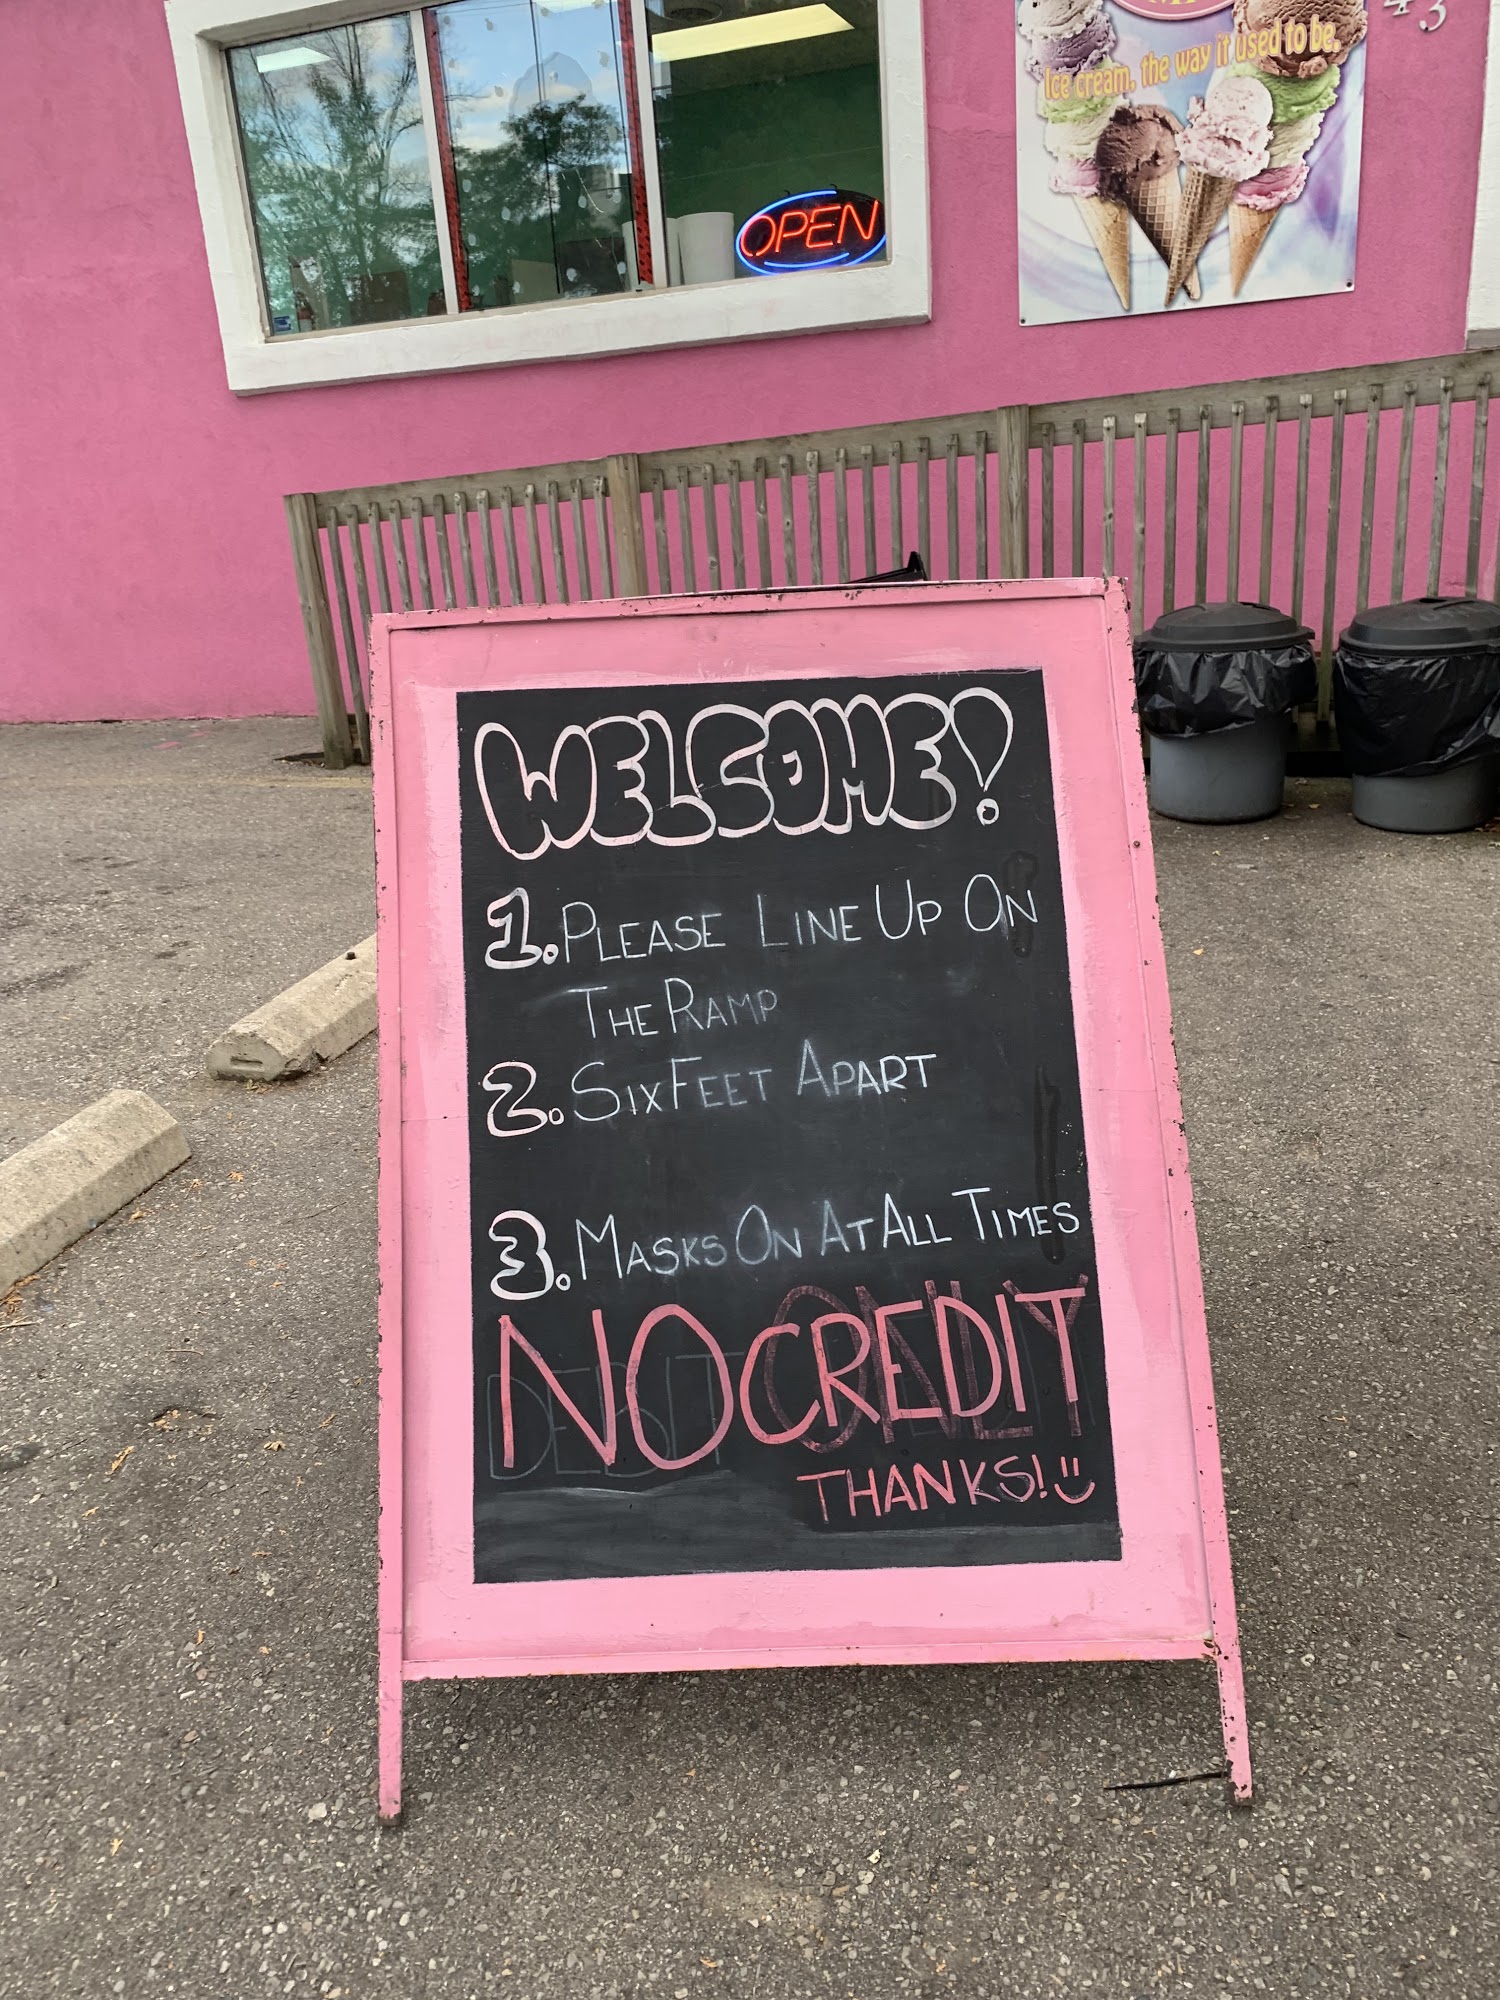 Ice cream, the way it used to be.
43
OPEN
WELCOME!
1. PLEASE LINE UP ON
THE RAMP
2. SIX FEET APART
3. MASKS ON AT ALL TIMES
NO CREDIT
DEBIT ONLY
THANKS!